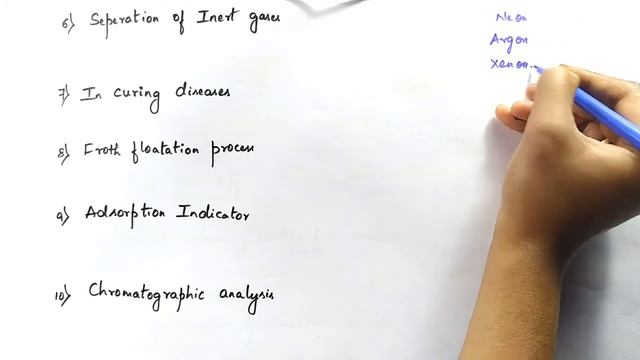 6) Seperation of Inert gases
Neon
Argon
Xenon
7) In curing diseases
8) Froth floatation process
9) Adsorption Indicator
10) Chromatographic analysis